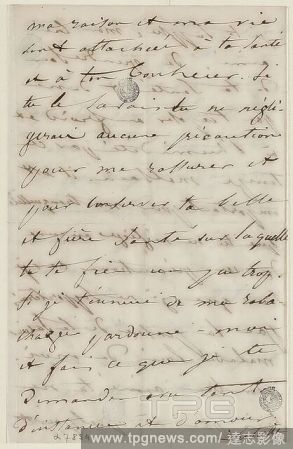 ma raison et ma vie
sont attachées à ta santé
et à ton bonheur. Si
tu le savais tu ne négli
gerais aucune précaution
pour me rassurer et
pour conserver ta belle
et fière santé sur laquelle
tu te fies un peu trop.
Si je t'ennuie de mon
pardonne-moi
et fais ce que je te
demande avec tant
d'instance et d'amour
TPG
www.tpgnews.com/ 達志影像